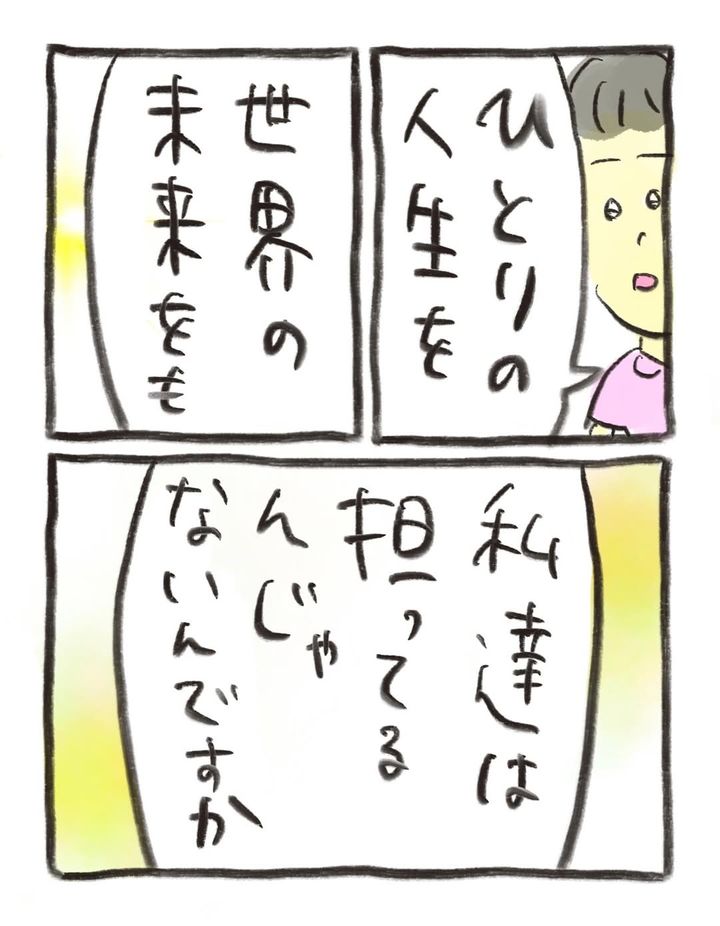 ひとりの
人生を
世界の
未来をも
私達は
担ってる
んじゃ
ないんですか